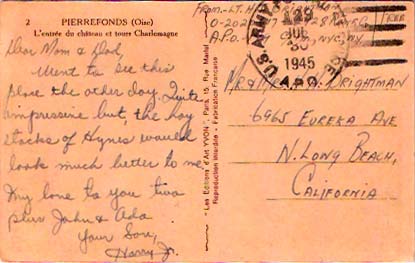 2 PIERREFONDS (Oise)
L'entrée du château et tours Charlemagne
Dear Mom & Dad,
Went to see this
place the other day. Quite
impressive but, the hay
stacks of Hynes would
look much better to me.
My love to you two
plus John & Ada
Your Son,
Harry Jr.
"Les Editions d'Art YVON", Paris, 15, Rue Martel
Reproduction interdite - Fabrication Française
FROM - LT. H
O-202
A.P.O. NYC, NY
FREE
U.S. ARMY
129
JUL
30
1945
A.P.O.
MR & MRS BRIGHTMAN
6965 EUREKA AVE
N. LONG BEACH,
CALIFORNIA